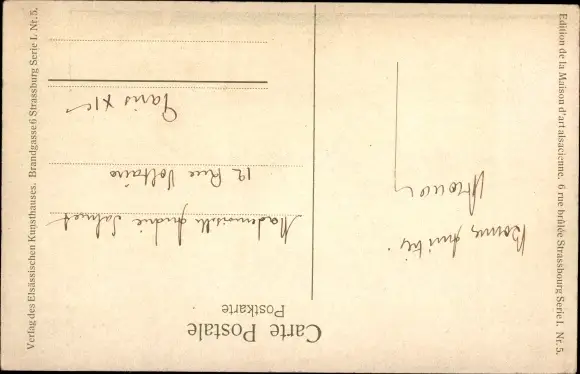 Carte Postale
Postkarte
Bonne amitié.
Mademoiselle Andrée
12 Rue Voltaire
Paris XIe
Edition de la Maison d'art alsacienne. 6 rue brûlée Strassbourg Serie I. Nr. 5.
Verlag des Elsässischen Kunsthauses. Brandgasse 6 Strassburg Serie I. Nr. 5.